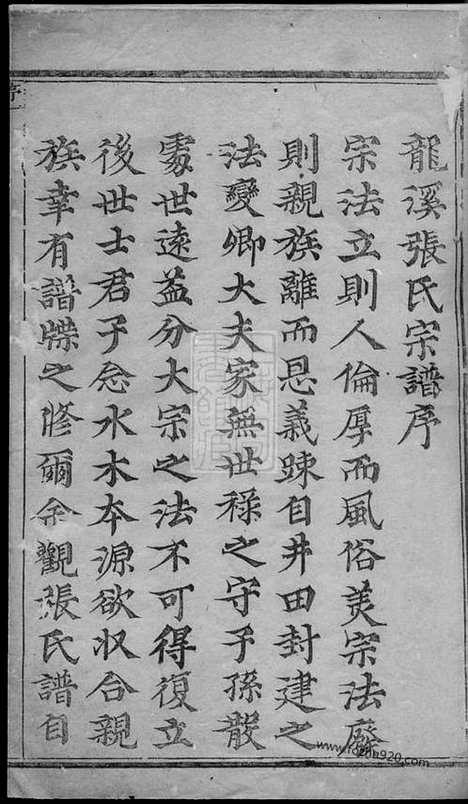 龍溪張氏宗譜序
宗法立則人倫厚而風俗美宗法廢
則親族離而恩義踈自井田封建之
法變卿大夫家無世祿之守子孫散
處世遠益分大宗之法不可得復立
後世士君子念水木本源欲收合親
族幸有譜牒之修爾余觀張氏譜自
www.fozun920.com